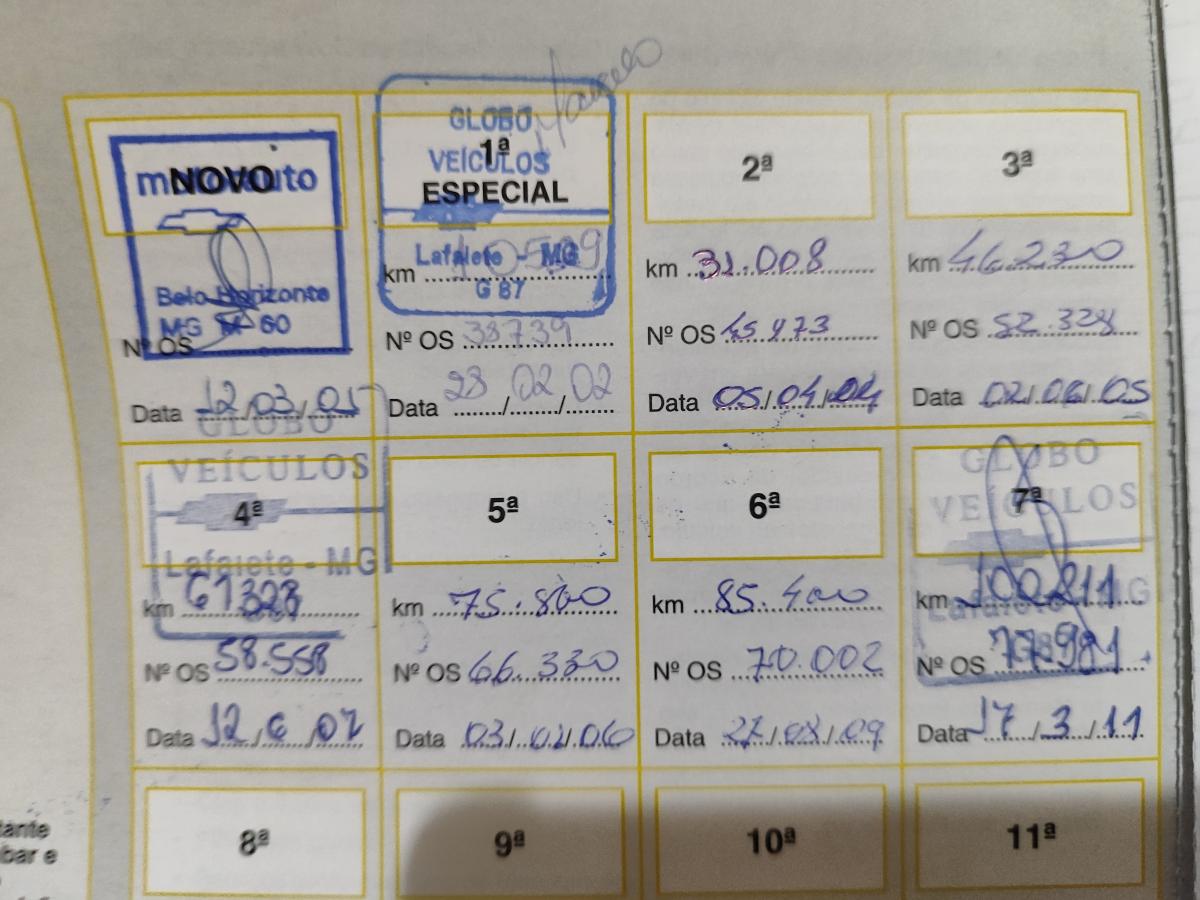 Marcelo
NOVO
Belo Horizonte
MG M-60
Nº OS
Data 12/03/01
GLOBO
VEÍCULOS
1ª
ESPECIAL
Lafaiete - MG
G 87
km
Nº OS 38739
Data 28/02/02
2ª
km 31.008
Nº OS 45.973
Data 05/04/04
3ª
km 46.230
Nº OS 52.328
Data 02/06/05
GLOBO
VEÍCULOS
4ª
Lafaiete - MG
km 61328
Nº OS 58.558
Data 12/6/07
5ª
km 75.800
Nº OS 66.330
Data
6ª
km 85.400
Nº OS 70.002
Data 27/08/09
GLOBO
VEÍCULOS
7ª
km 100211
Lafaiete - MG
Nº OS 77.981
Data 17/3/11
8ª
9ª
10ª
11ª
bar e